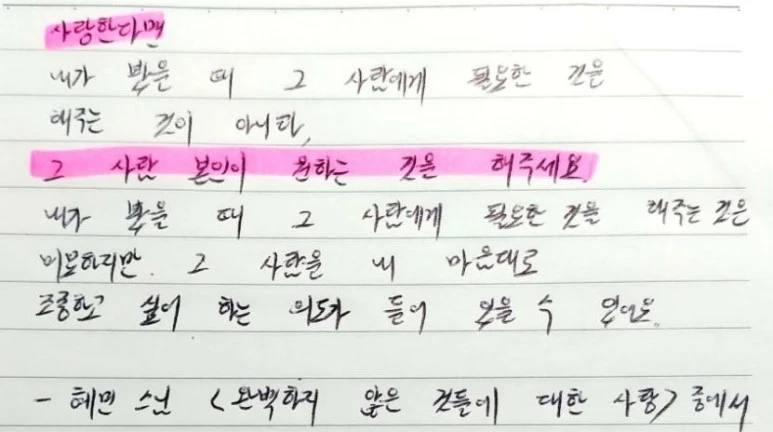 사랑한다면
내가 봤을 때 그 사람에게 필요한 것을
해주는 것이 아니라,
그 사람 본인이 원하는 것을 해주세요.
내가 봤을 때 그 사람에게 필요한 것을 해주는 것은
미묘하지만 그 사람을 내 마음대로
조종하고 싶어 하는 의도가 들어 있을 수 있어요.
- 혜민 스님 <완벽하지 않은 것들에 대한 사랑> 중에서